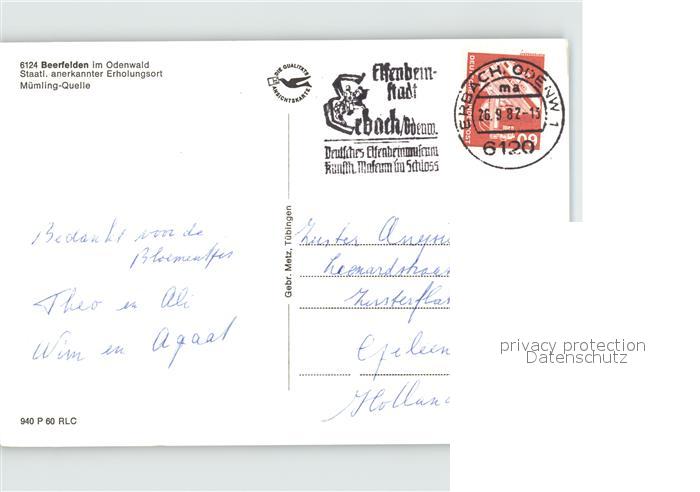 6124 Beerfelden im Odenwald
Staatl. anerkannter Erholungsort
Mümling-Quelle
DIE QUALITÄTS
ANSICHTSKARTE
Elfenbein-
stadt
Erbach/Odenw.
Deutsches Elfenbeinmuseum
Kunsth. Museum im Schloss
ERBACH, ODENW 1
ma
26.9.82-13
6120
60
Gebr. Metz, Tübingen
Bedankt voor de
Bloemetjes
Theo en Ali
Wim en Agaat
Zuster
Leonardstraat
Zusterflat
Holland
940 P 60 RLC
privacy protection
Datenschutz